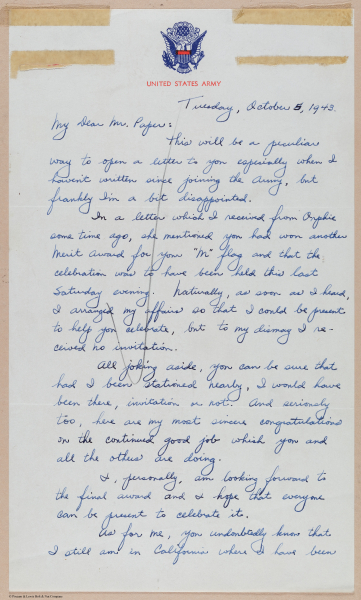 UNITED STATES ARMY
Tuesday, October 5, 1943.
My Dear Mr. Paper:
This will be a peculiar
way to open a letter to you especially when I
haven't written since joining the Army, but
frankly I'm a bit disappointed.
In a letter which I received from Orphie
some time ago, she mentioned you had won another
Merit Award for your "M" flag and that the
celebration was to have been held this last
Saturday evening. Naturally, as soon as I heard,
I arranged my affairs so that I could be present
to help you celebrate, but to my dismay I re-
ceived no invitation.
All joking aside, you can be sure that
had I been stationed nearby, I would have
been there, invitation or not. And seriously
too, here are my most sincere congratulations
on the continued good job which you and
all the others are doing.
I, personally, am looking forward to
the final award and I hope that everyone
can be present to celebrate it.
As for me, you undoubtedly know that
I still am in California where I have been